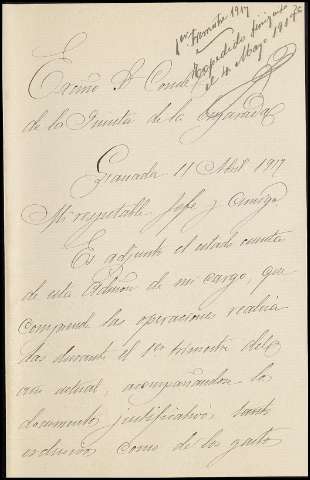 1er Trimestre 1917
Expedido finiquito
el 4 Mayo 1917
Excmo Sr Conde
de la Puerta de la
Granada 11 Abril 1917
Mi respetable Jefe y Amigo
Es adjunto el estado cuenta
de esta Admon de mi cargo, que
comprende las operaciones realiza
das durante el 1er trimestre del
año actual, acompañandole los
documentos justificativos, tanto
como de los gastos